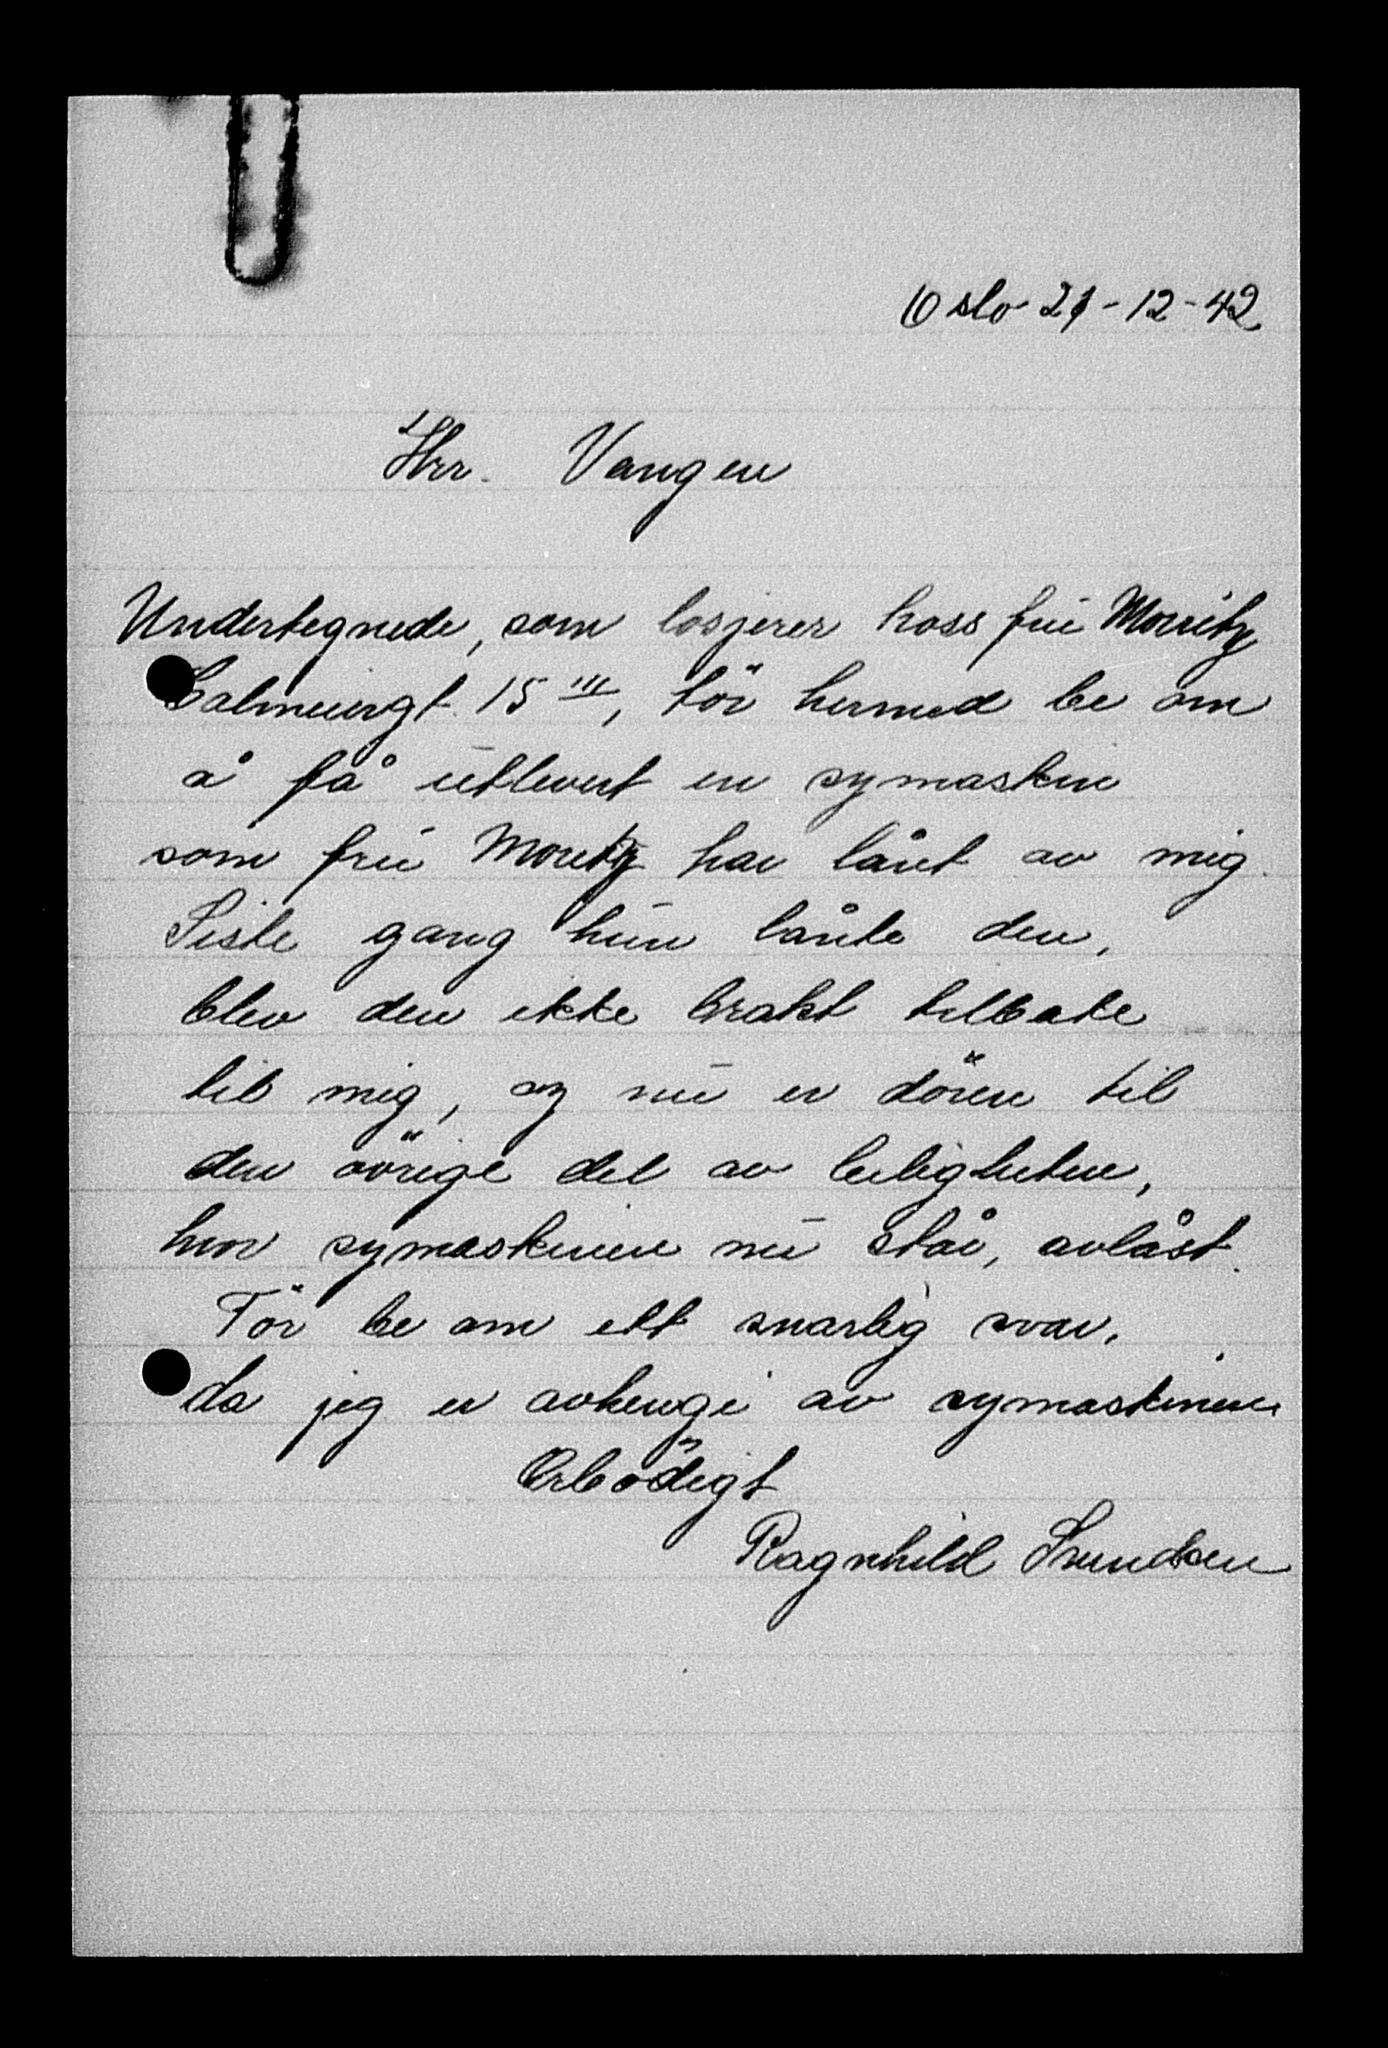 Oslo 21-12-42
Hrr. Vangen
Undertegnede, som losjerer hoss frū Moritz
Calmeiergt. 15 III, tör hermed be om
å få ūtlevert en symaskin
som frū Moritz har lånt av mig.
Siste gang hūn lånte den,
blev den ikke brakt tilbake
til mig, og nū er dören til
den övrige del av leiligheten,
hvor symaskinen nū står, avlåst.
Tör be om ett snarlig svar,
da jeg er avhengi av symaskinen.
Erbödigt
Ragnhild Svendsen